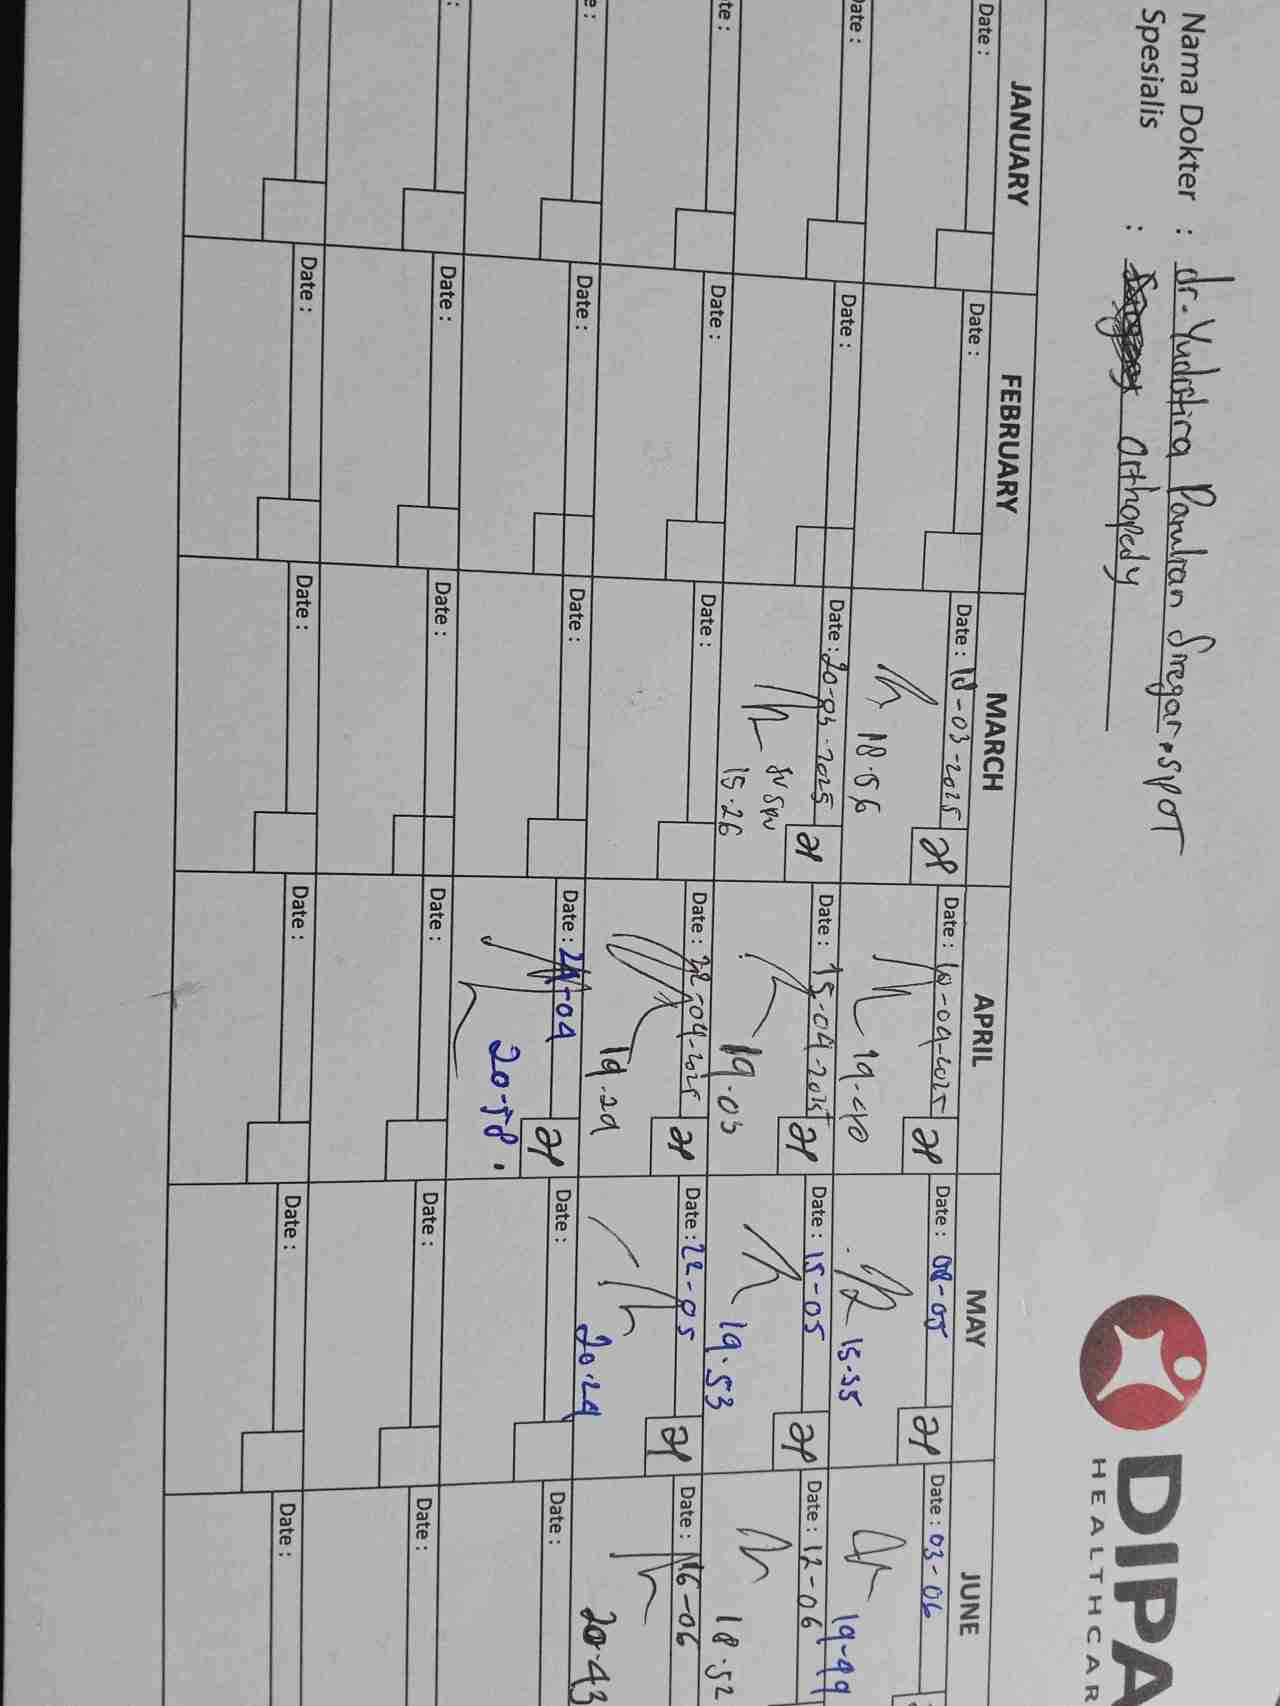 Nama Dokter : dr. Yudistira Panulian Siregar, SPOT
Spesialis : Orthopedy
DIPA
HEALTHCAR
JANUARY FEBRUARY MARCH APRIL MAY JUNE
Date : Date : Date : 18-03-2025 Date : 10-04-2025 Date : 08-05 Date : 03-06
18.56 19-40 15.55 19-49
Date : Date : Date : 20-03-2025 Date : 15-04-2025 Date : 15-05 Date : 12-06
15.26 19.03 19.53 18.52
Date : Date : Date : Date : 22-04-2025 Date : 22-05 Date : 16-06
19.29 20.29 20-43
Date : Date : Date : Date : 24-04 Date : Date :
20-58.
Date : Date : Date : Date : Date : Date :
Date : Date : Date : Date : Date : Date :